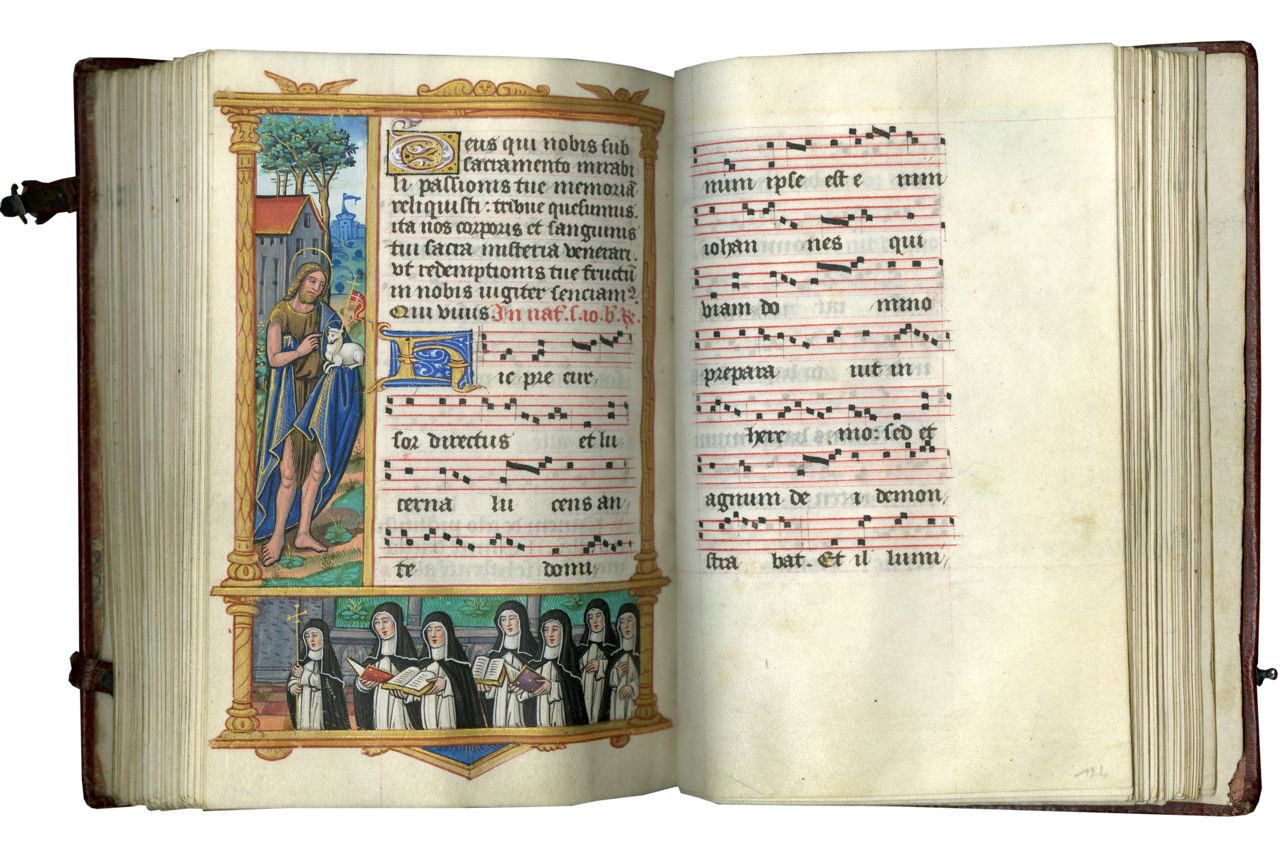 Deus qui nobis sub
sacramento mirabi
li passionis tue memoriā
reliquisti : tribue quesumus.
ita nos corporis et sanguinis
tui sacra misteria venerari.
vt redemptionis tue fructū
in nobis iugiter senciam⁹.
Qui viuis In nat. s. io. b. R.
Hic pre cur,
sor directus et lu
cerna lu cens an,
te domi,
num ipse est e nim
iohan nes qui
viam do mino
prepara uit in
here mo: sed et
agnum de i demon,
stra bat. Et il lumi,